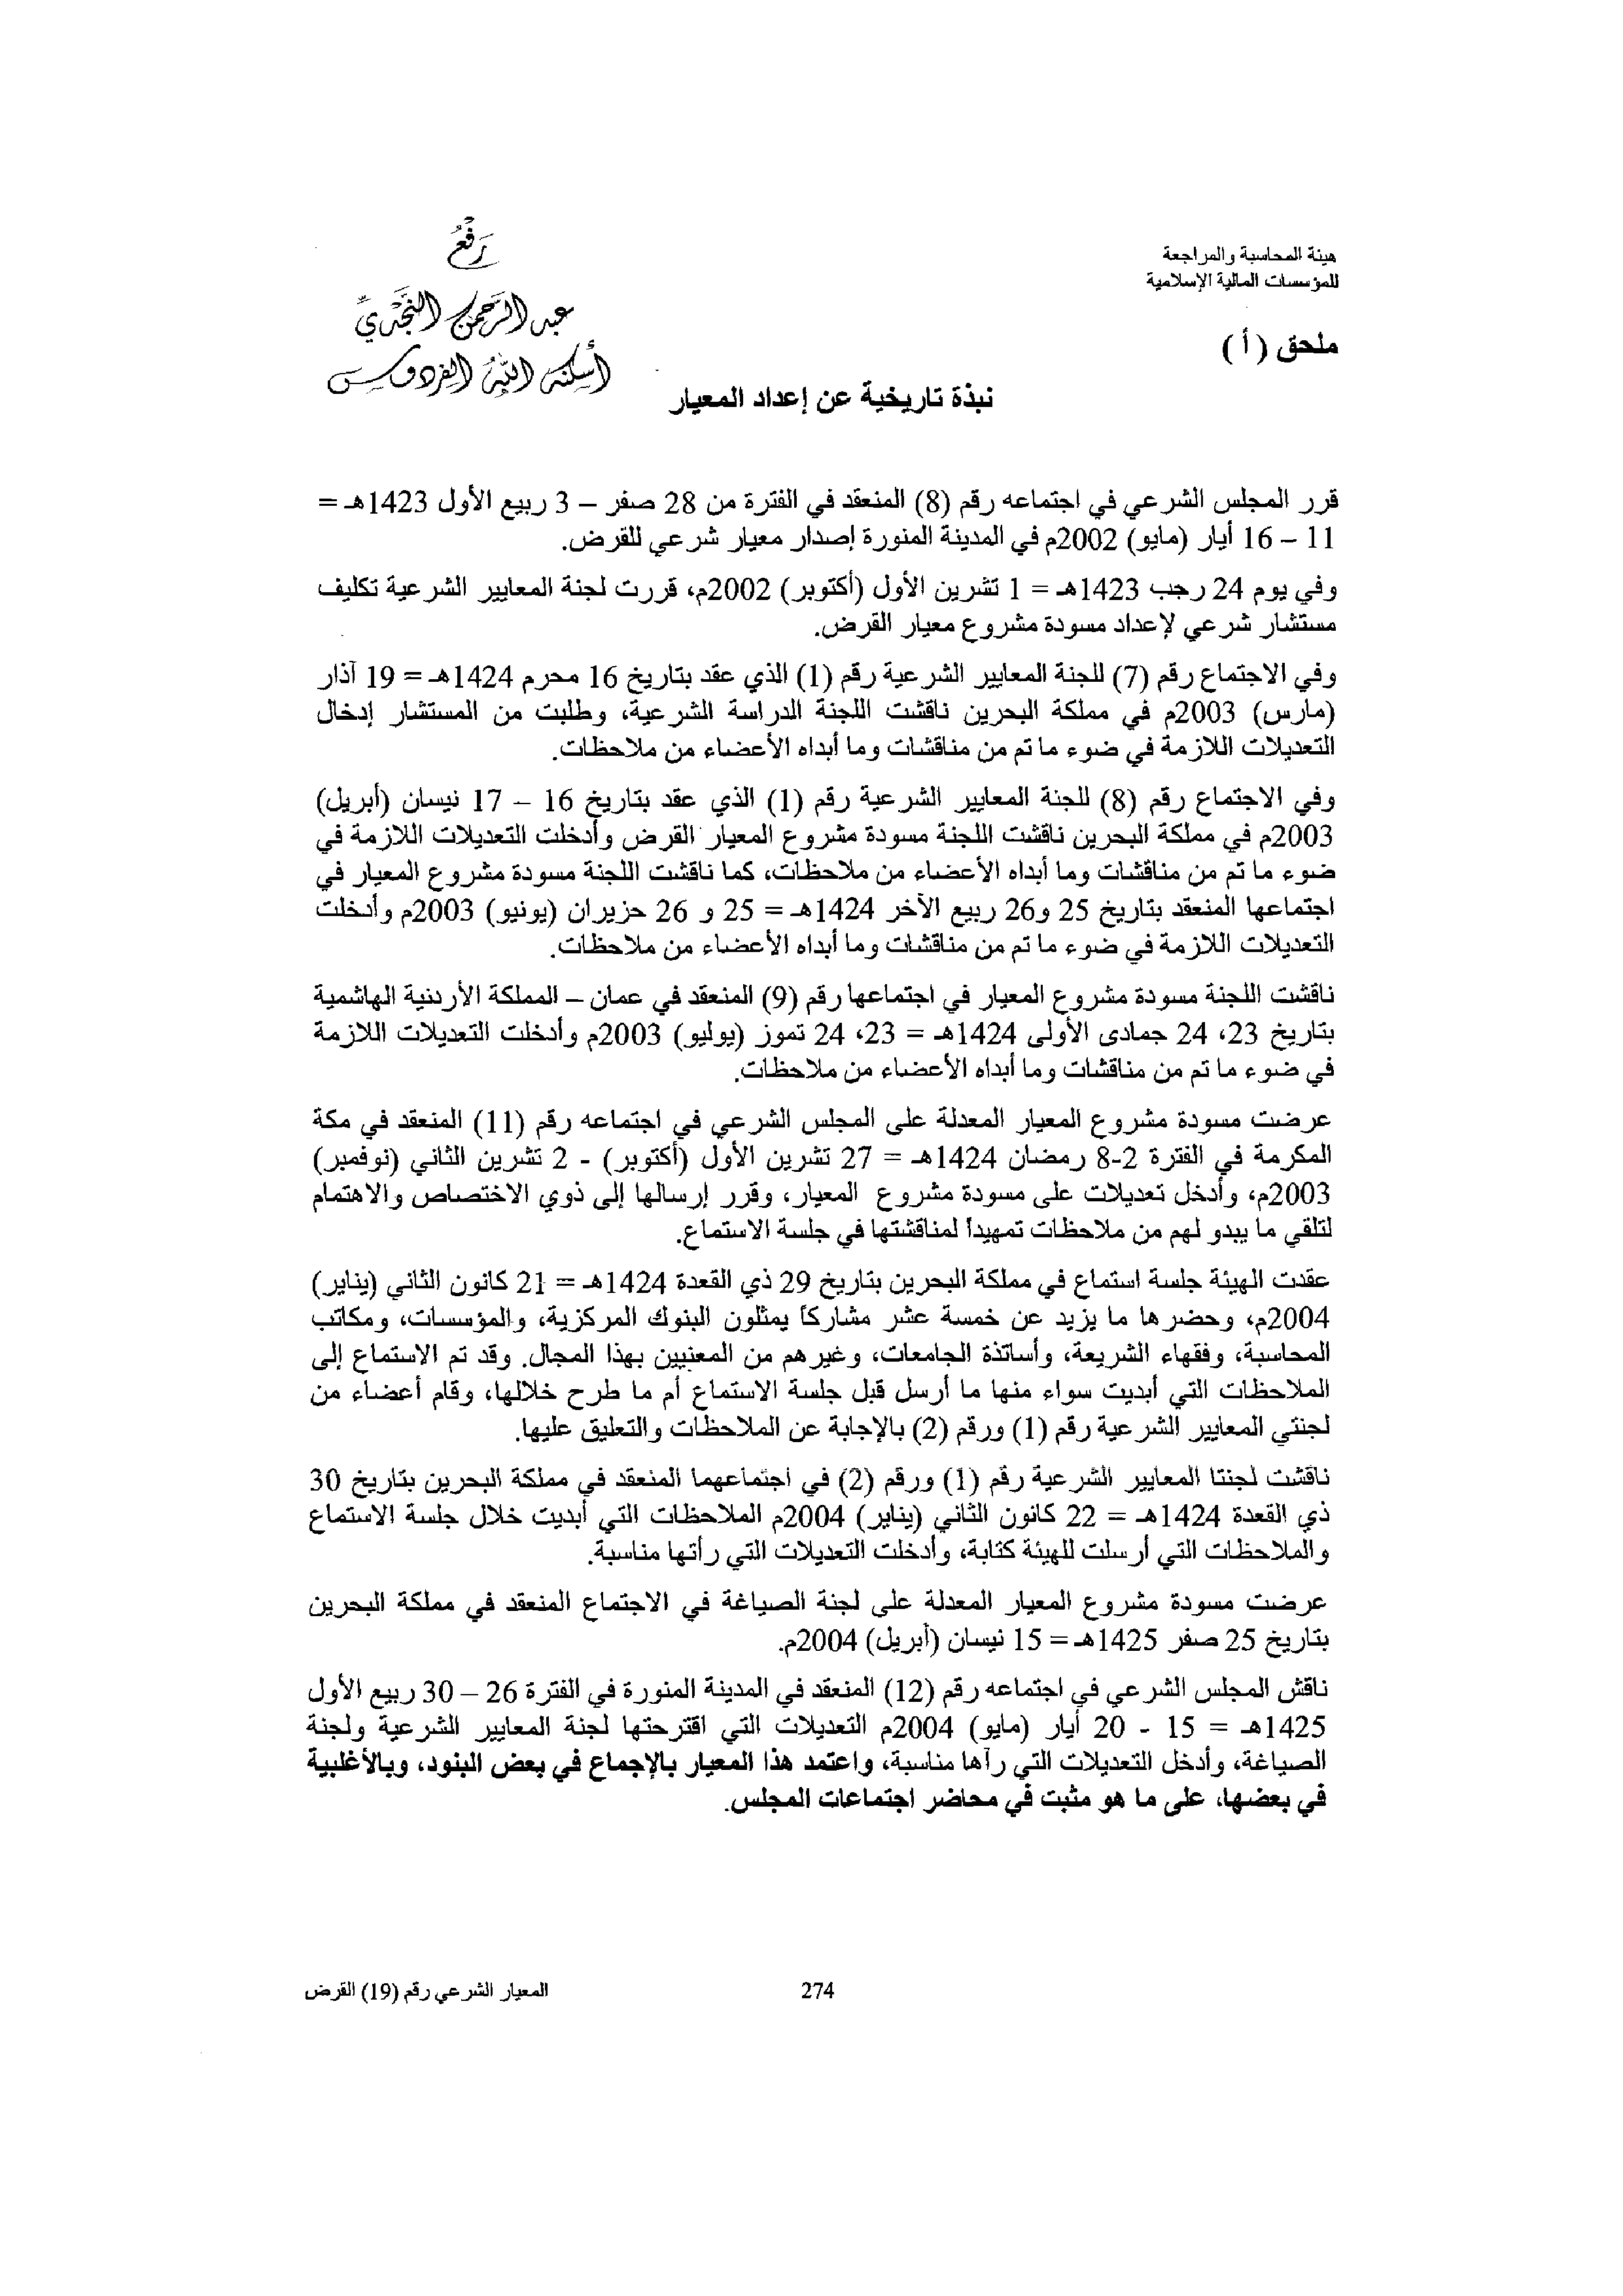 هيئة المحاسبة والمراجعة
للمؤسسات المالية الإسلامية
رَفْعُ
عبد الرَّحمن النَّجْديِّ
أسكنه اللهُ الفردوسَ
ملحق (أ)
نبذة تاريخية عن إعداد المعيار
قرر المجلس الشرعي في اجتماعه رقم (8) المنعقد في الفترة من 28 صفر – 3 ربيع الأول 1423هـ =
11 – 16 أيار (مايو) 2002م في المدينة المنورة إصدار معيار شرعي للقرض.
وفي يوم 24 رجب 1423هـ = 1 تشرين الأول (أكتوبر) 2002م، قررت لجنة المعايير الشرعية تكليف
مستشار شرعي لإعداد مسودة مشروع معيار القرض.
وفي الاجتماع رقم (7) للجنة المعايير الشرعية رقم (1) الذي عقد بتاريخ 16 محرم 1424هـ = 19 آذار
(مارس) 2003م في مملكة البحرين ناقشت اللجنة الدراسة الشرعية، وطلبت من المستشار إدخال
التعديلات اللازمة في ضوء ما تم من مناقشات وما أبداه الأعضاء من ملاحظات.
وفي الاجتماع رقم (8) للجنة المعايير الشرعية رقم (1) الذي عقد بتاريخ 16 – 17 نيسان (أبريل)
2003م في مملكة البحرين ناقشت اللجنة مسودة مشروع المعيار القرض وأدخلت التعديلات اللازمة في
ضوء ما تم من مناقشات وما أبداه الأعضاء من ملاحظات، كما ناقشت اللجنة مسودة مشروع المعيار في
اجتماعها المنعقد بتاريخ 25 و26 ربيع الآخر 1424هـ = 25 و 26 حزيران (يونيو) 2003م وأدخلت
التعديلات اللازمة في ضوء ما تم من مناقشات وما أبداه الأعضاء من ملاحظات.
ناقشت اللجنة مسودة مشروع المعيار في اجتماعها رقم (9) المنعقد في عمان – المملكة الأردنية الهاشمية
بتاريخ 23، 24 جمادى الأولى 1424هـ = 23، 24 تموز (يوليو) 2003م وأدخلت التعديلات اللازمة
في ضوء ما تم من مناقشات وما أبداه الأعضاء من ملاحظات.
عرضت مسودة مشروع المعيار المعدلة على المجلس الشرعي في اجتماعه رقم (11) المنعقد في مكة
المكرمة في الفترة 2-8 رمضان 1424هـ = 27 تشرين الأول (أكتوبر) - 2 تشرين الثاني (نوفمبر)
2003م، وأدخل تعديلات على مسودة مشروع المعيار، وقرر إرسالها إلى ذوي الاختصاص والاهتمام
لتلقي ما يبدو لهم من ملاحظات تمهيداً لمناقشتها في جلسة الاستماع.
عقدت الهيئة جلسة استماع في مملكة البحرين بتاريخ 29 ذي القعدة 1424هـ = 21 كانون الثاني (يناير)
2004م، وحضرها ما يزيد عن خمسة عشر مشاركاً يمثلون البنوك المركزية، والمؤسسات، ومكاتب
المحاسبة، وفقهاء الشريعة، وأساتذة الجامعات، وغيرهم من المعنيين بهذا المجال. وقد تم الاستماع إلى
الملاحظات التي أبديت سواء منها ما أرسل قبل جلسة الاستماع أم ما طرح خلالها، وقام أعضاء من
لجنتي المعايير الشرعية رقم (1) ورقم (2) بالإجابة عن الملاحظات والتعليق عليها.
ناقشت لجنتا المعايير الشرعية رقم (1) ورقم (2) في اجتماعهما المنعقد في مملكة البحرين بتاريخ 30
ذي القعدة 1424هـ = 22 كانون الثاني (يناير) 2004م الملاحظات التي أبديت خلال جلسة الاستماع
والملاحظات التي أرسلت للهيئة كتابة، وأدخلت التعديلات التي رأتها مناسبة.
عرضت مسودة مشروع المعيار المعدلة على لجنة الصياغة في الاجتماع المنعقد في مملكة البحرين
بتاريخ 25 صفر 1425هـ = 15 نيسان (أبريل) 2004م.
ناقش المجلس الشرعي في اجتماعه رقم (12) المنعقد في المدينة المنورة في الفترة 26 – 30 ربيع الأول
1425هـ = 15 - 20 أيار (مايو) 2004م التعديلات التي اقترحتها لجنة المعايير الشرعية ولجنة
الصياغة، وأدخل التعديلات التي رآها مناسبة، واعتمد هذا المعيار بالإجماع في بعض البنود، وبالأغلبية
في بعضها، على ما هو مثبت في محاضر اجتماعات المجلس.
274
المعيار الشرعي رقم (19) القرض